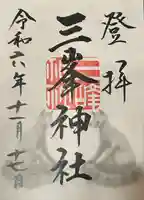 登拝
三峯神社
令和六年十一月十日